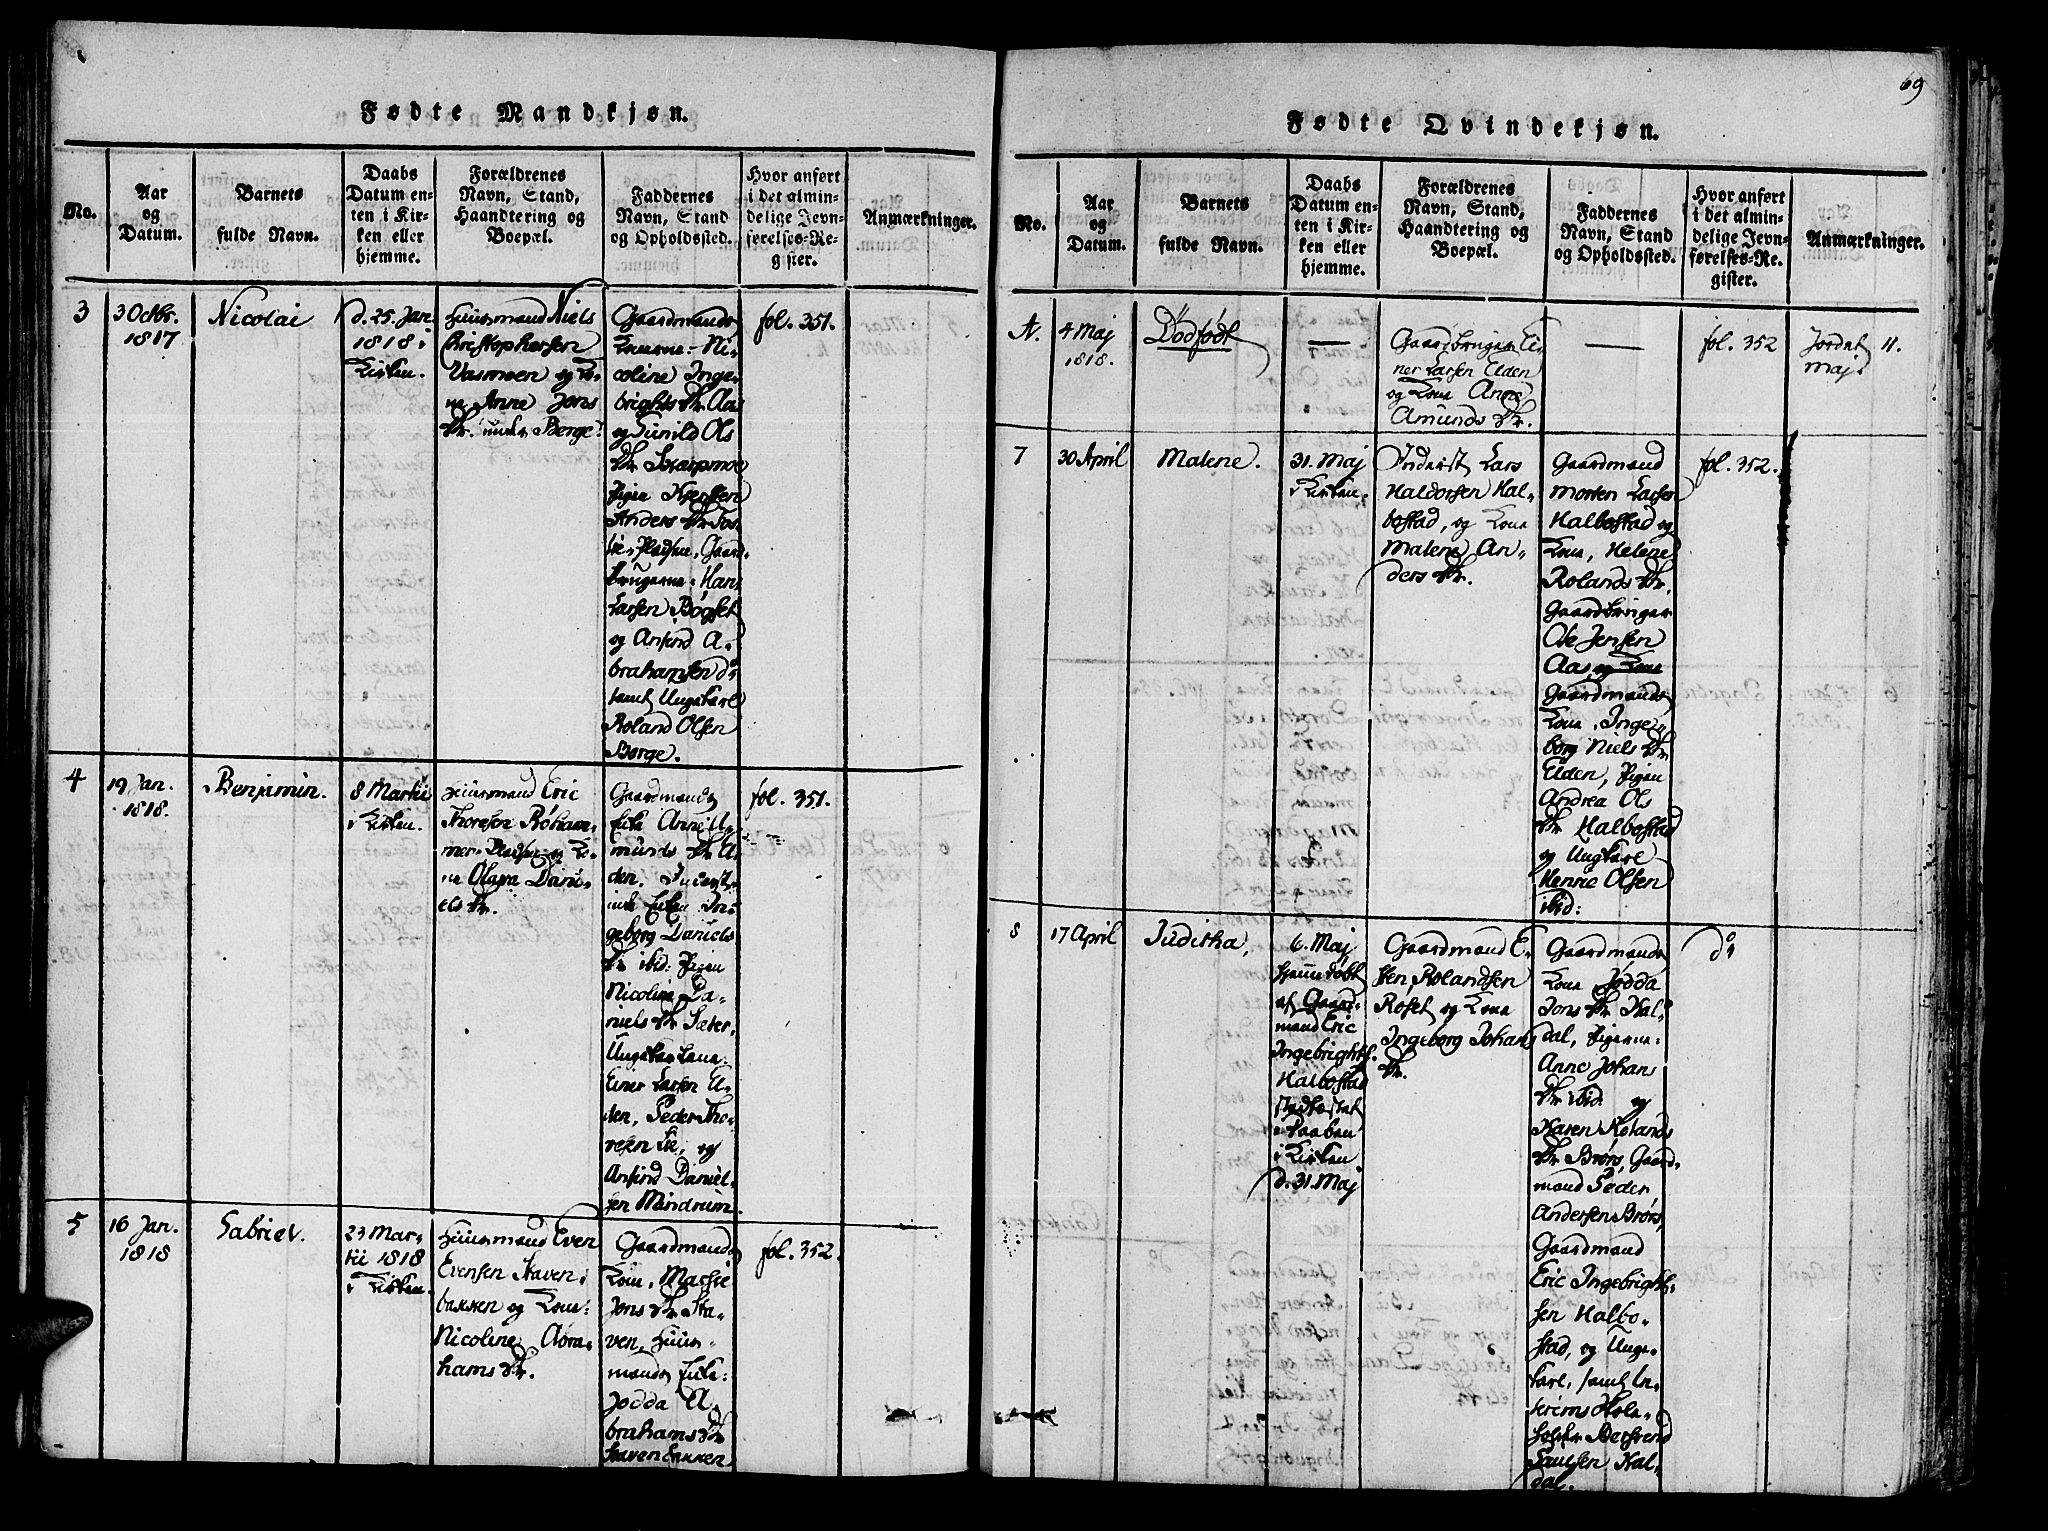 Fødte Mandkjøn.
No.
Aar
og
Datum.
Barnets
fulde Navn.
Daabs
Datum en-
ten i Kir-
ken eller
hjemme.
Forældrenes
Navn, Stand,
Haandtering og
Boepæl.
Faddernes
Navn, Stand
og Opholdssted.
Hvor anført
i det almin-
delige Jevn-
førelses-Re-
gister.
Anmærkninger.
3
3 Octbr.
1817
Nicolai
d. 25. Jan.
1818 i
Kirken.
Huusmand Niels
Christophersen
Vasmoen og Ko-
ne Anne Jons
Dr. under Berge.
Gaardmands
Konerne - Ni-
coline Inge-
brights Dr. Aas
og Gunild Ols
Dr. Skarpmoe
Pigen Kjersten
Anders Dr.
Pladsen, Gaard-
brugerne: Han
Larsen Bøgset
og Anfind A-
brahamsen do
samt Ungekarl
Roland Olsen
Berge.
fol. 351.
4
19 Jan.
1818.
Benjamin.
8 Martii
i Kirken.
Huusmand Eric
Thoresen
Pladsen og Ko-
ne Olava Dani-
els Dr.
Gaardmands
Enke Anne A-
munds Dr. El-
den, Inderst-
inde Enken In-
geborg Daniels
Dr ibid: Pigen
Nicoline Da-
niels Dr Sæter,
Ungekarlene:
Einer Larsen El-
den, Peder Tho-
resen Lie, og
Anfind Daniel-
sen Mindrum.
fol. 351.
5
16 Jan.
1818
Gabriel.
23 Mar-
tii 1818
i Kirken.
Huusmand Even
Evensen Staven-
bakken og Kone:
Nicoline Abra-
hams Dr.
Gaardmands
Kone, Marsie
Jons Dr. Sta-
ven, Huus-
mands Enke:
Jodda A-
brahams Dr
Stavenbakken
fol. 352.
69
Fødte Qvindekjøn.
No.
Aar
og
Datum.
Barnets
fulde Navn.
Daabs
Datum en-
ten i Kir-
ken eller
hjemme.
Forældrenes
Navn, Stand,
Haandtering og
Boepæl.
Faddernes
Navn, Stand
og Opholdssted.
Hvor anført
i det almin-
delige Jevn-
førelses-Re-
gister.
Anmærkninger.
A.
4 Maj
1818.
Dødfødt
—
Gaardbruger Ei-
ner Larsen Elden
og Kone Anne
Amunds Dr.
—
fol. 352
Jordet 11.
Maj.
7
30 April
Malene.
31. Maj
i Kirken.
Inderst Lars
Haldorsen Hal-
bostad, og Kone
Malene An-
ders Dr.
Gaardmand
Morten Larsen
Halbostad og
Kone, Helene
Rolands Dr.
Gaardbruger
Ole Jensen
Aas, og Kone
Gaardmands
Kone, Inge-
borg Niels Dr
Elden, Pigen
Andrea Ols
Dr Halbostad
og Ungkarl
Henric Olsen
ibid:
fol. 352.
8
17 April
Juditha,
6. Maj
hjemmedøbt
af Gaard-
mand Eric
Ingebrights.
Halbostad
stadfæstet
Daaben
i Kirken
d. 31. Maj
Gaardmand E-
sten Rolandsen
Roset og Kone
Ingeborg Johans
Dr.
Gaardmands
Kone Jødda
Jons Dr Kal-
dal, Pigerne:
Anne Johans
Dr ibid. og
Karen Rolands
Dr Brørs, Gaard-
mand Peder
Andersen Brørs,
Gaardmand
Eric Ingebright-
sen Halbo-
stad, og Unge-
karl, samt In-
terims Skole-
holder Bertrend
Paulsen Kal-
dal.
do